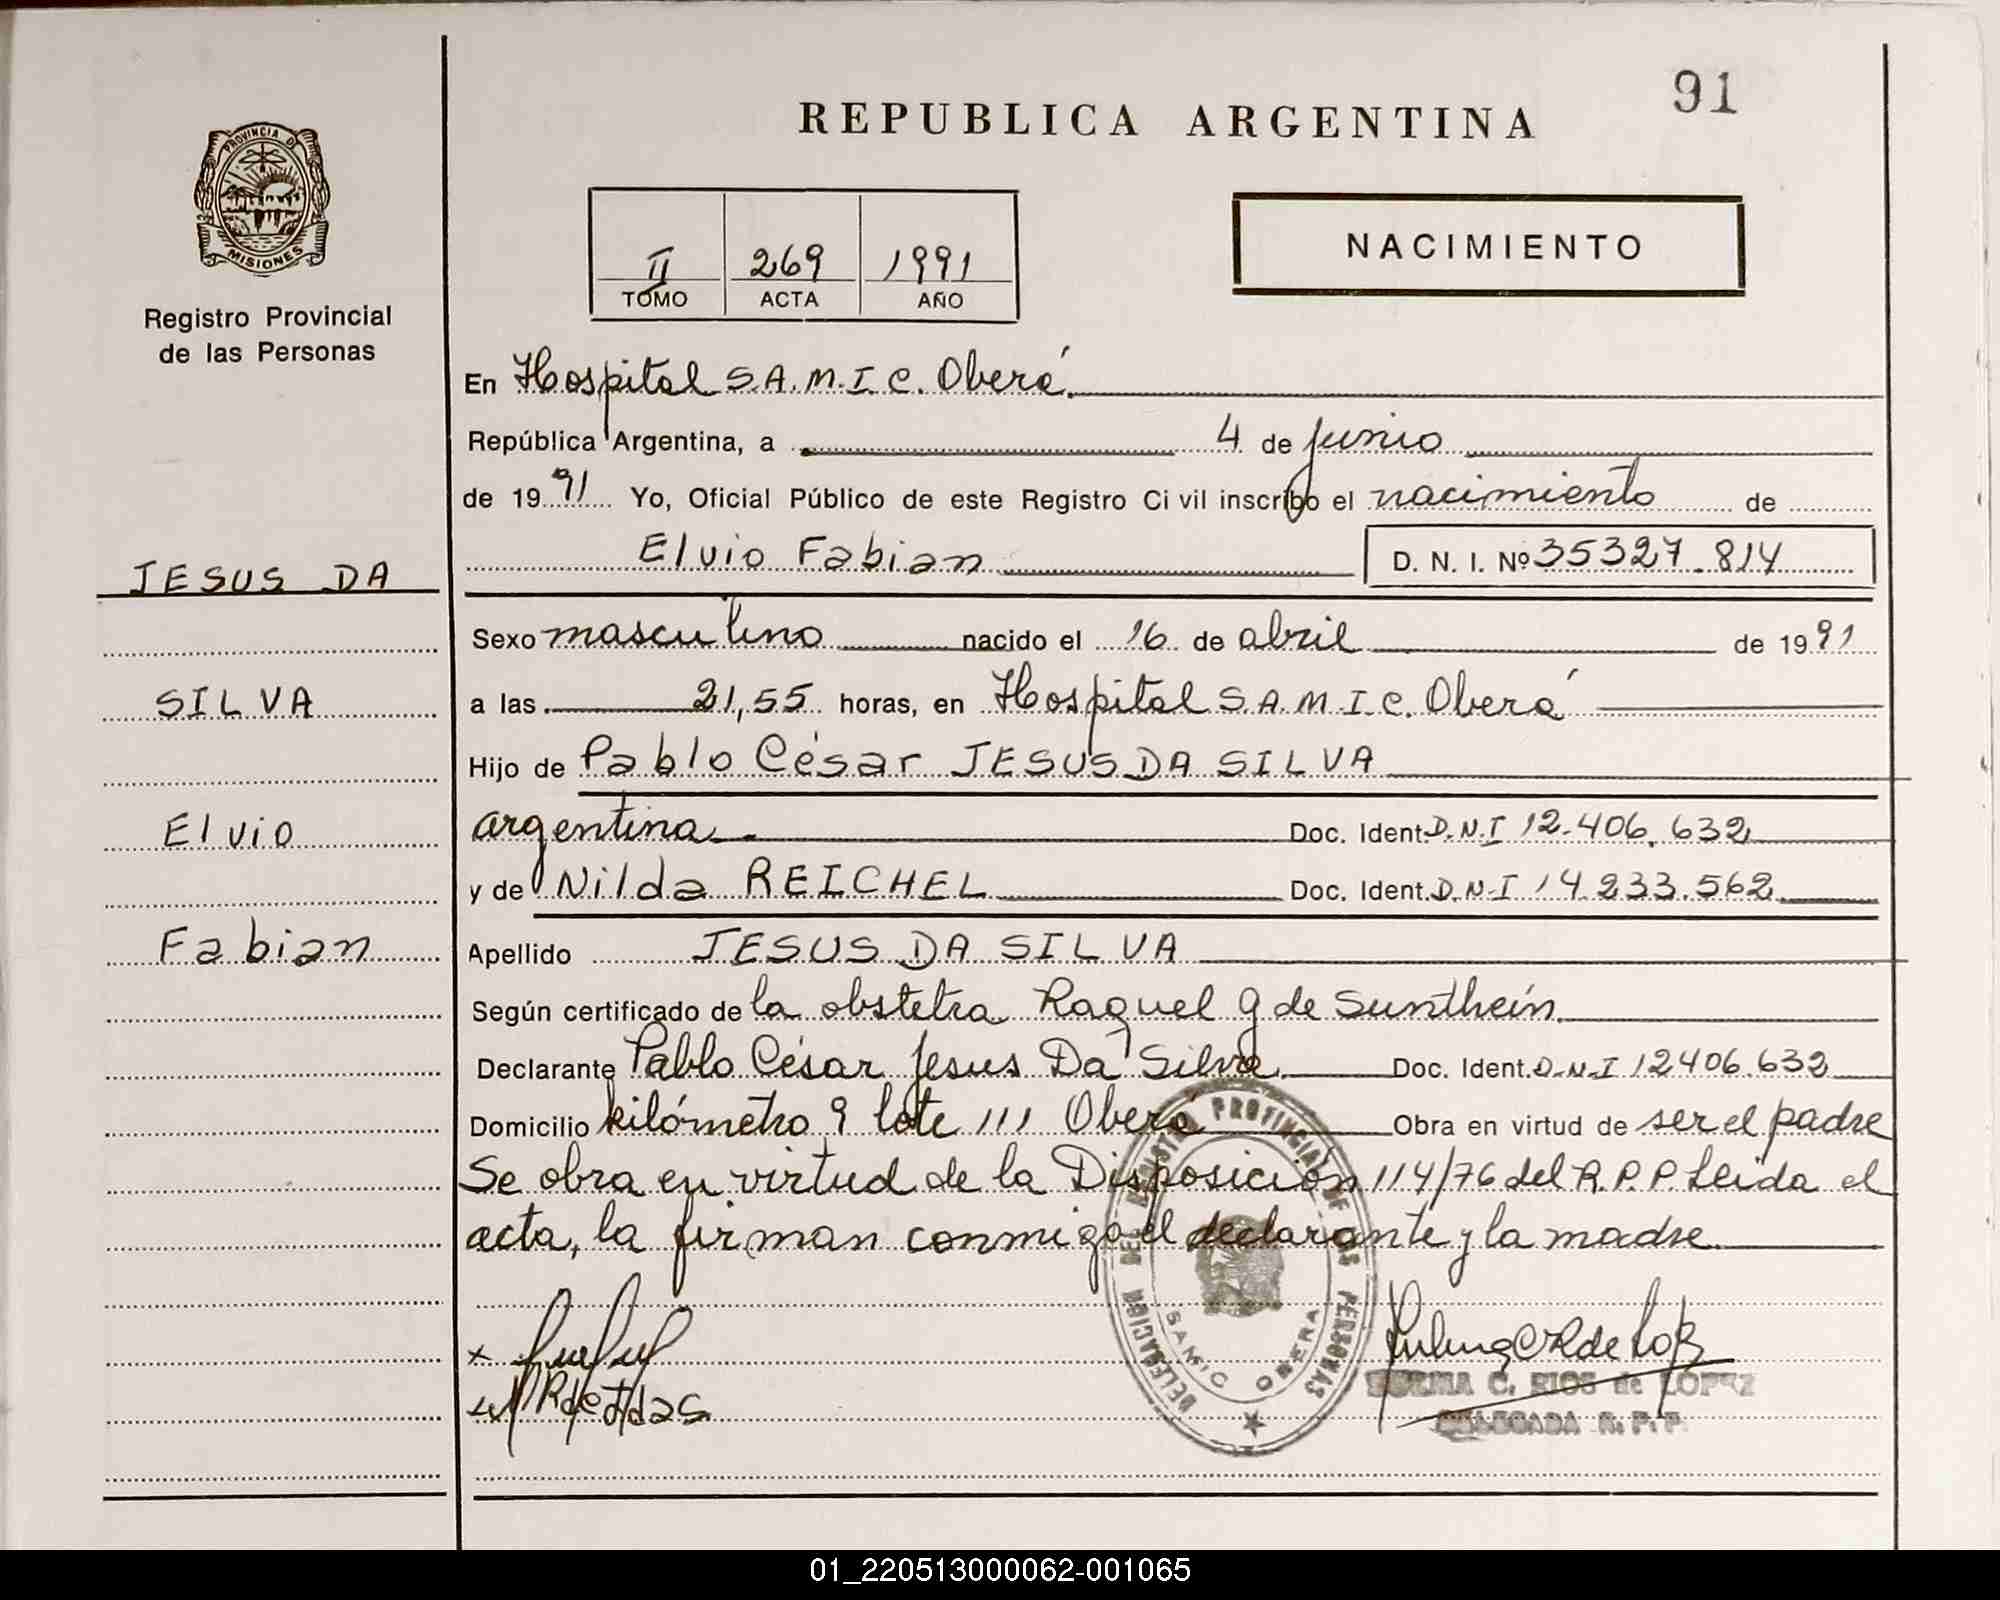 91
REPUBLICA ARGENTINA
PROVINCIA DE
MISIONES
Registro Provincial
de las Personas
II 269 1991
TOMO ACTA AÑO
NACIMIENTO
En Hospital S.A.M.I.C. Oberá
República Argentina, a 4 de junio
de 1991 Yo, Oficial Público de este Registro Civil inscribo el nacimiento de
Elvio Fabian D. N. I. Nº 35327.814
JESUS DA
SILVA
Elvio
Fabian
Sexo masculino nacido el 16 de abril de 1991
a las 21,55 horas, en Hospital S.A.M.I.C. Oberá
Hijo de Pablo César JESUS DA SILVA
argentina Doc. Ident. D.N.I 12.406.632
y de Nilda REICHEL Doc. Ident. D.N.I 14.233.562
Apellido JESUS DA SILVA
Según certificado de la obstetra Raquel G de Sunthein
Declarante Pablo César Jesus Da Silva Doc. Ident. D.N.I 12406.632
Domicilio kilómetro 9 lote 111 Oberá Obra en virtud de ser el padre
Se obra en virtud de la Disposición 114/76 del R.P.P. Leida el
acta, la firman conmigo el declarante y la madre
DELEGACION DEL REGISTRO PROVINCIAL DE LAS PERSONAS
SAMIC OBERA
NORMA C. RIOS de LOPEZ
DELEGADA R. P. P.
01_220513000062-001065